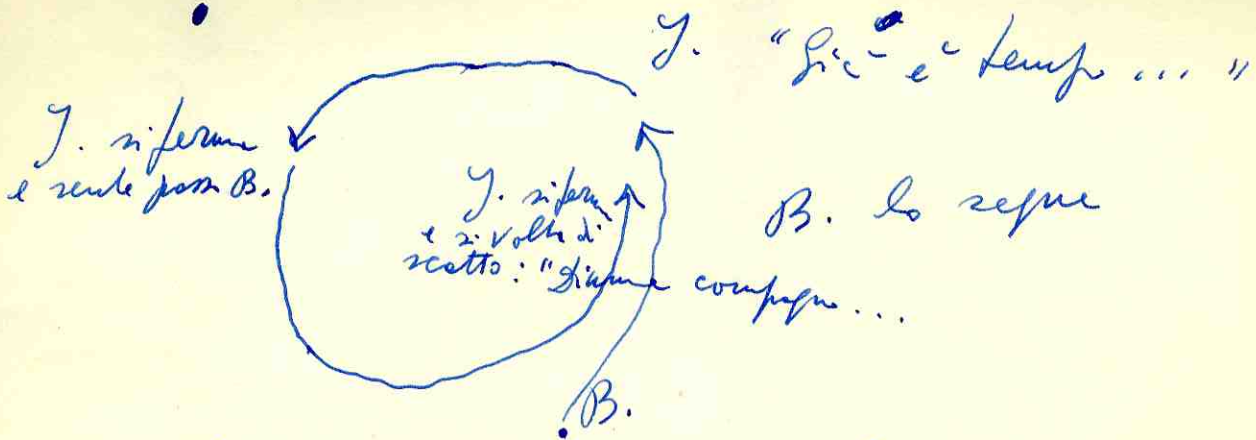 J. "Già è tempo ... "
J. si ferma
e sente passi B.
J. si ferma
e si volta di
scatto: " compagno ...
B. lo segue
B.